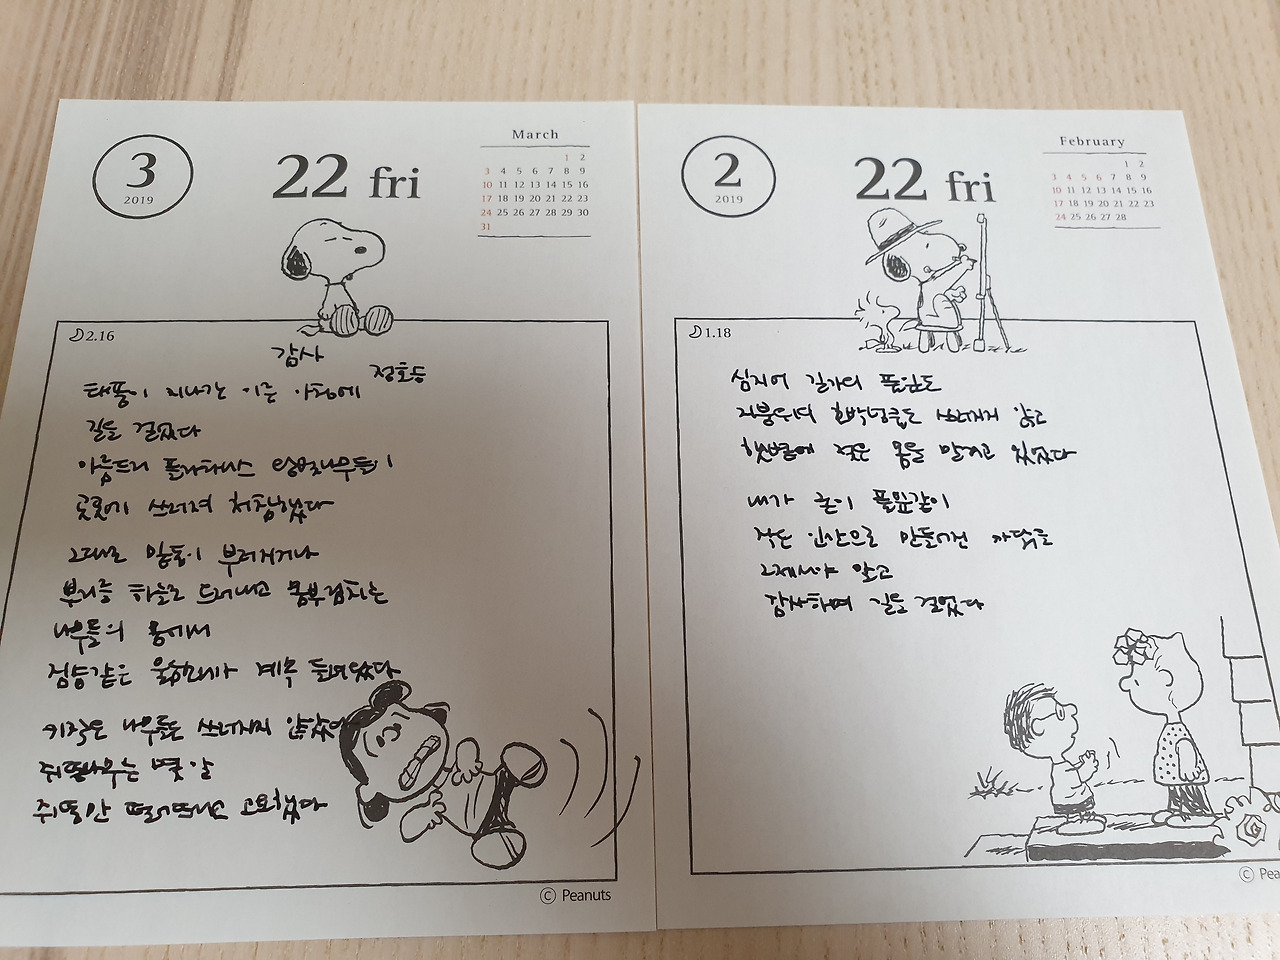 3
2019
22 fri
March
1 2
3 4 5 6 7 8 9
10 11 12 13 14 15 16
17 18 19 20 21 22 23
24 25 26 27 28 29 30
31
2.16
감사
정호승
태풍이 지나간 이른 아침에
길을 걸었다
아름드리 플라타너스 왕벚나무들이
곳곳에 쓰러져 처참했다
그대로 밑둥이 부러지거나
뿌리를 하늘로 드러내고 몸부림치는
나무들의 몸에서
짐승같은 울음소리가 계속 들려왔다
키작은 나무들은 쓰러지지 않았다
쥐똥나무는 몇 알
쥐똥만 떨어뜨리고 고요했다
© Peanuts
2
2019
22 fri
February
1 2
3 4 5 6 7 8 9
10 11 12 13 14 15 16
17 18 19 20 21 22 23
24 25 26 27 28
1.18
심지어 길가의 풀잎도
지붕위의 호박넝쿨도 쓰러지지 않고
햇볕에 젖은 몸을 말리고 있었다
내가 굳이 풀잎같이
작은 인간으로 만들어진 까닭을
그제서야 알고
감사하며 길을 걸었다
© Pea